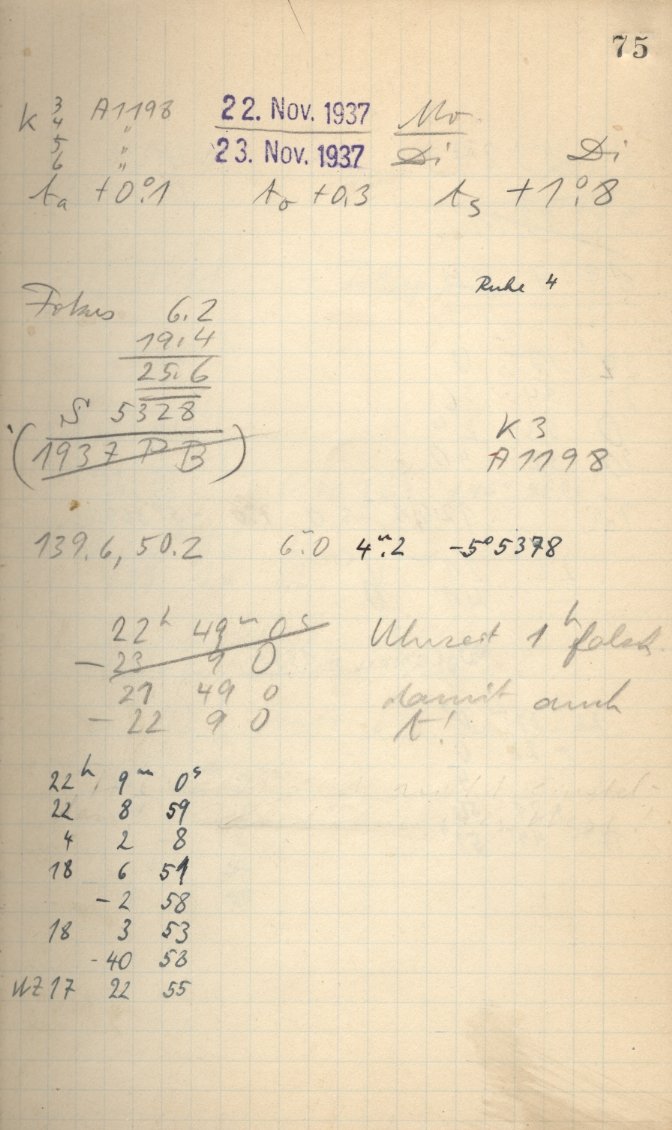 75
K 3 A1198 22. Nov. 1937 Mo
4 "
5 " 23. Nov. 1937 Di Di
6 "
ta +0°.1 to +0.3 ts +1°.8
Ruhe 4
Fokus 6.2
19.4
25.6
S 5328
(1937 PB)
K 3
A1198
139.6, 50.2 6.m0 4m.2 -5°5378
22h 49m 0s Uhrzeit 1h falsch
- 23 9 0
21 49 0 damit auch
- 22 9 0 t!
22h 9m 0s
22 8 59
4 2 8
18 6 51
-2 58
18 3 53
-40 58
WZ 17 22 55